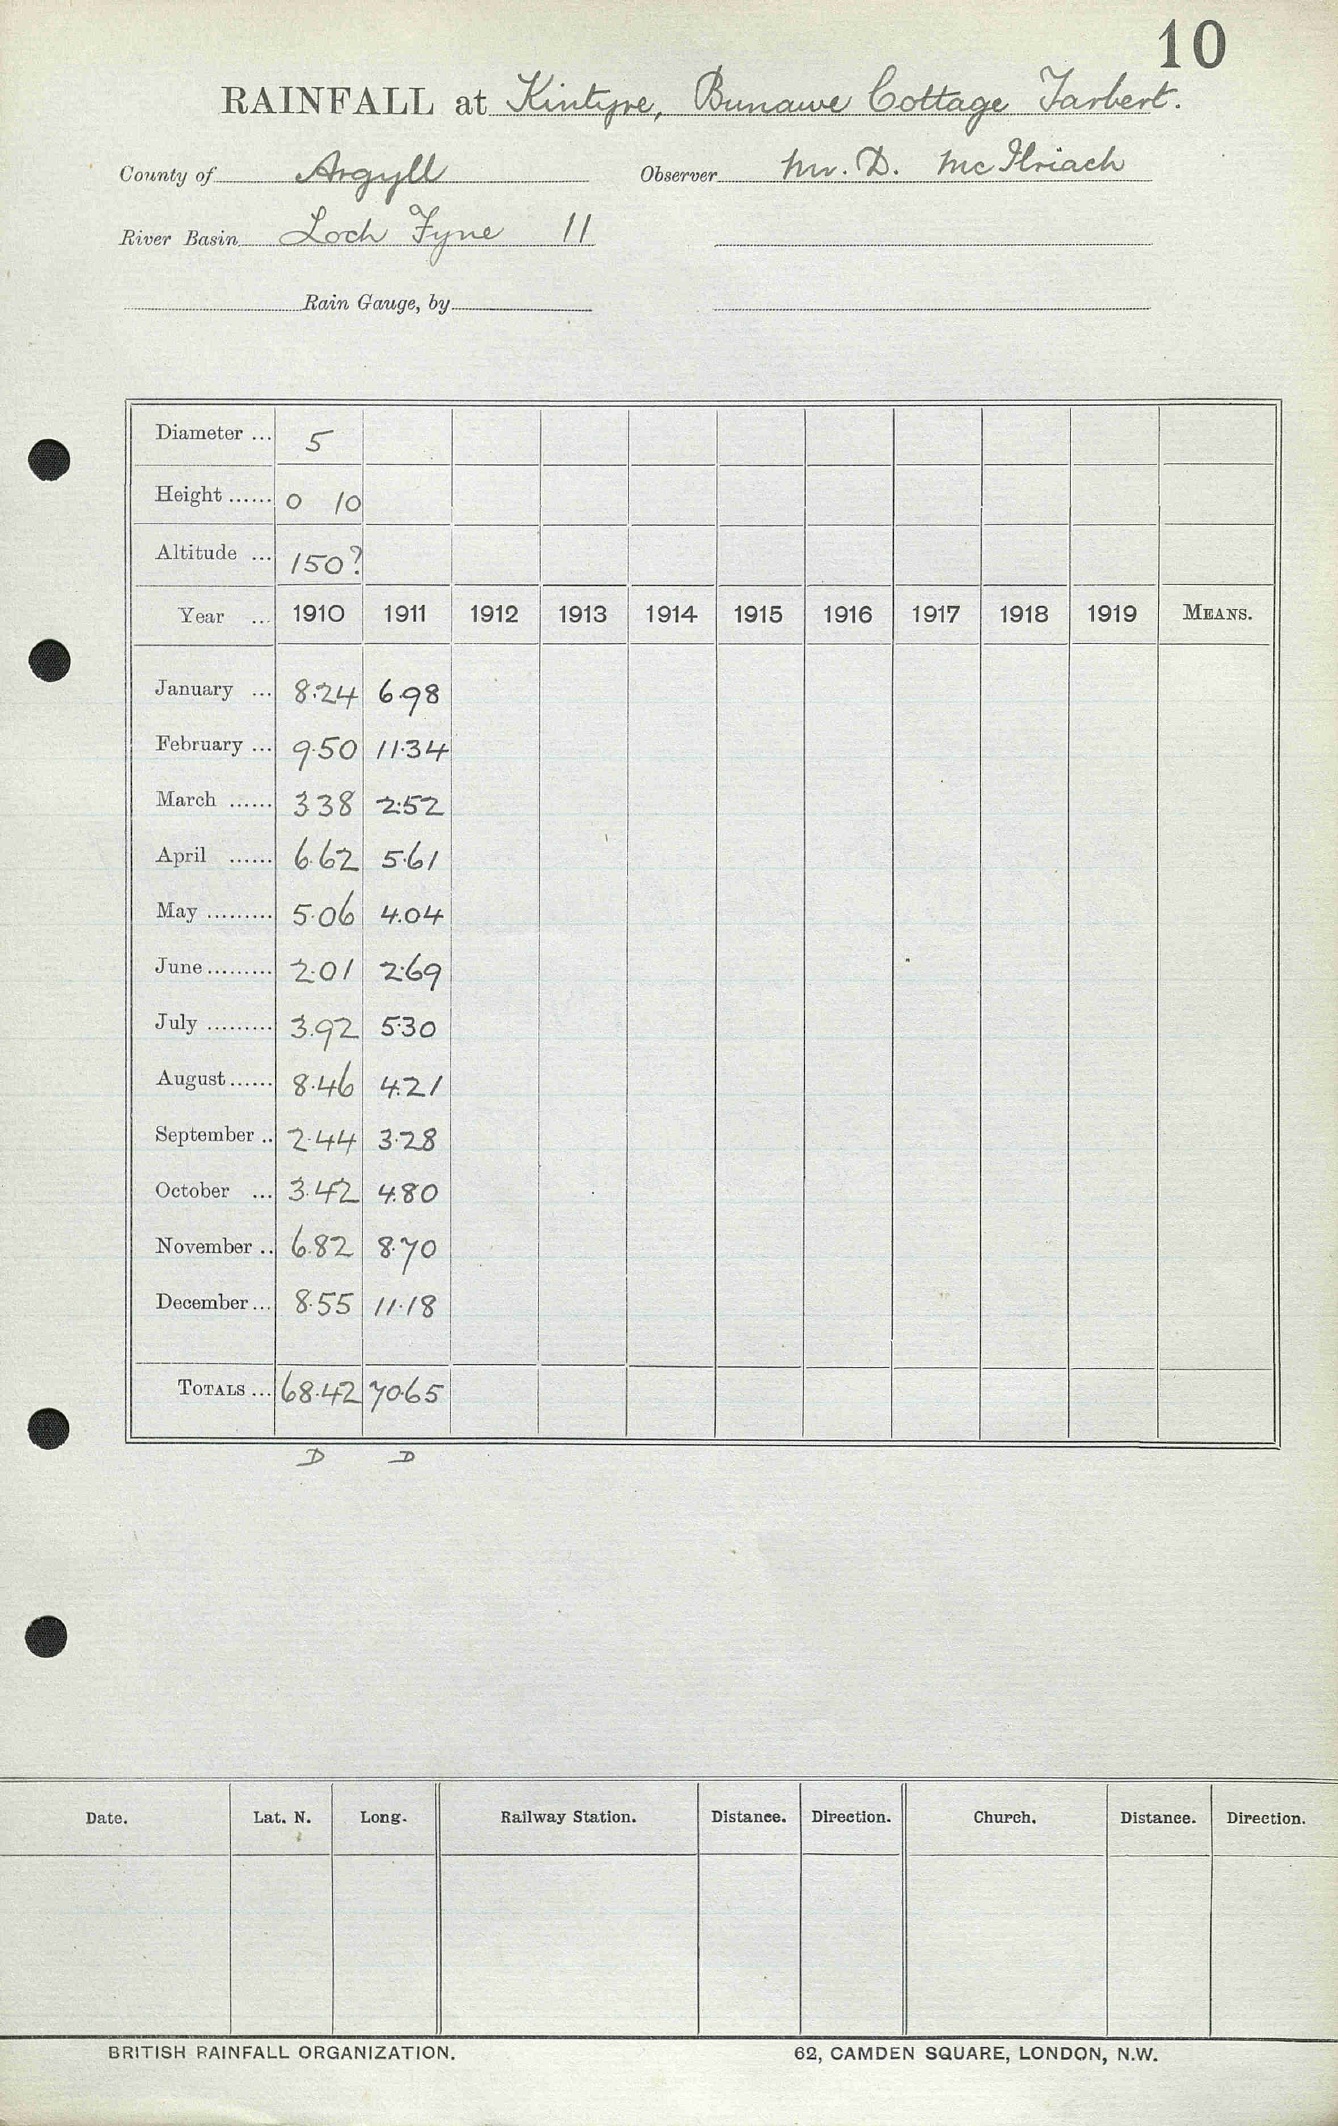 10
RAINFALL at Kintyre, Bunawe Cottage Tarbert.
County of Argyll Observer Mr. D. McIlriach
River Basin Loch Fyne 11
Rain Gauge, by
Diameter ... 5
Height ...... 0 10
Altitude ... 150?
Year ... 1910 1911 1912 1913 1914 1915 1916 1917 1918 1919 MEANS.
January ... 8.24 6.98
February ... 9.50 11.34
March ...... 3 38 2.52
April ...... 6.62 5.61
May ......... 5.06 4.04
June ......... 2.01 2.69
July ......... 3.92 5.30
August ...... 8.46 4.21
September .. 2.44 3.28
October ... 3.42 4.80
November .. 6.82 8.70
December ... 8.55 11.18
TOTALS ... 68.42 70.65
D D
Date. Lat. N. Long. Railway Station. Distance. Direction. Church. Distance. Direction.
BRITISH RAINFALL ORGANIZATION. 62, CAMDEN SQUARE, LONDON, N.W.